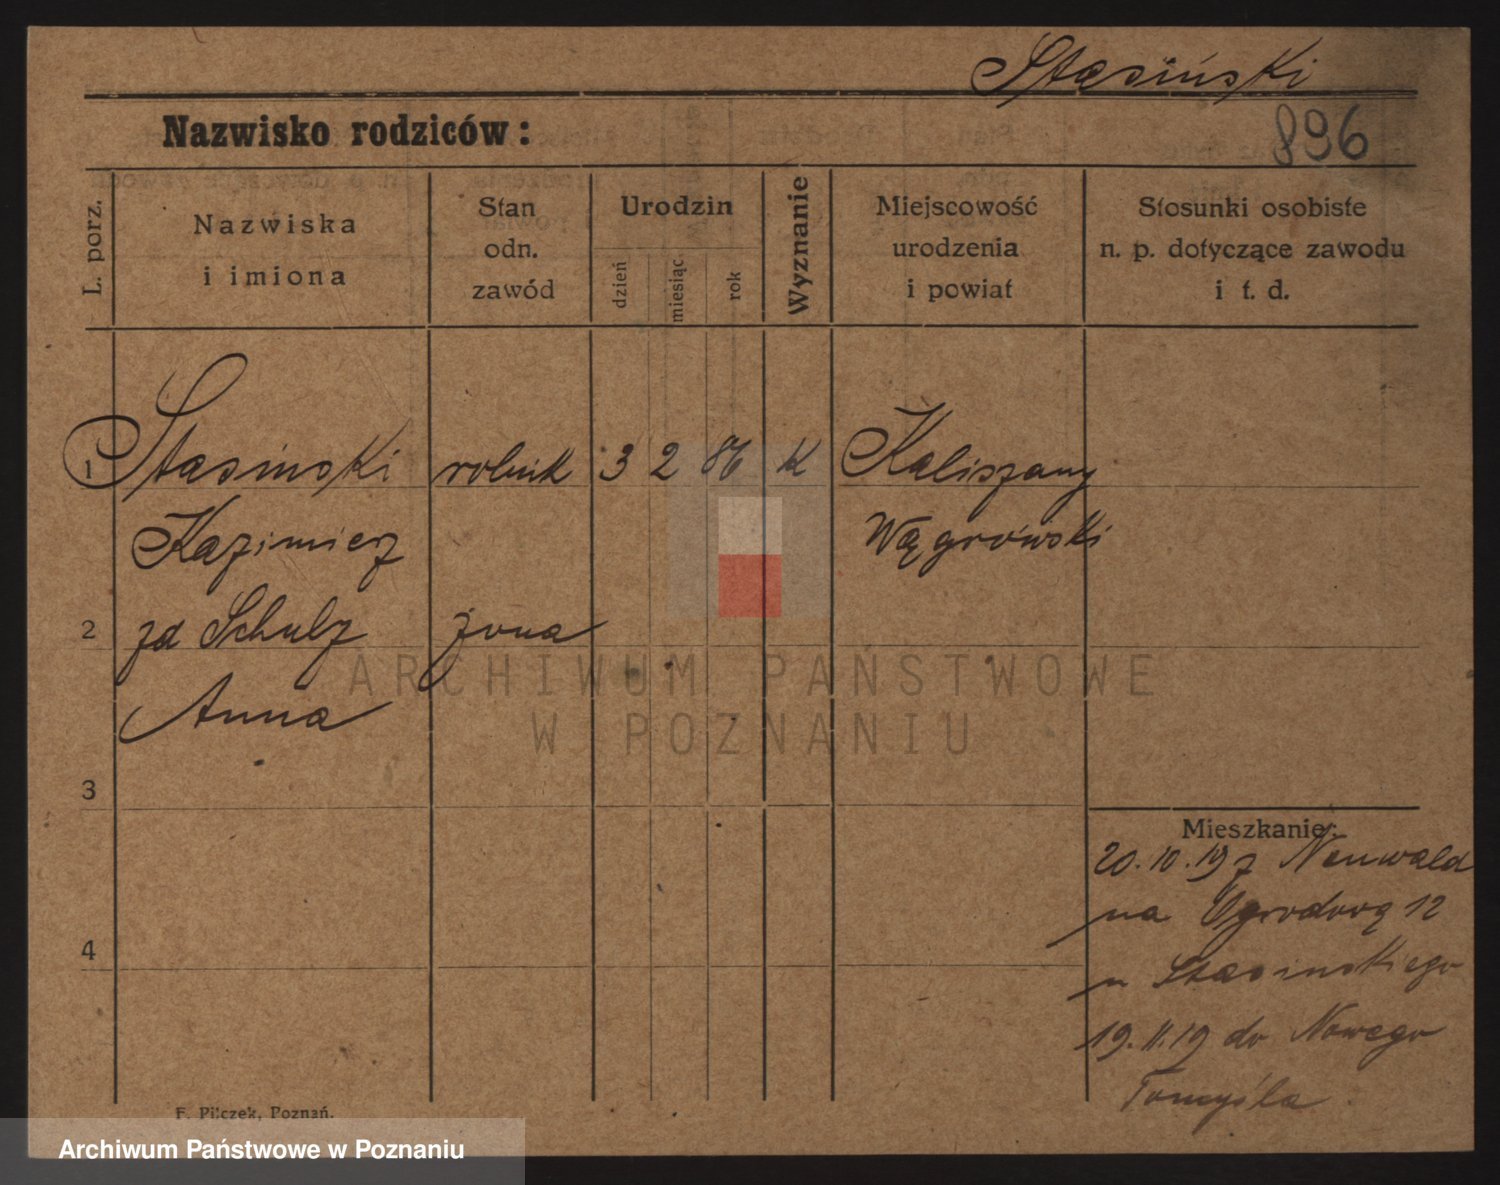 Stasiński
Nazwisko rodziców:
896
L. porz.
Nazwiska
i imiona
Stan
odn.
zawód
Urodzin
dzień
miesiąc
rok
Wyznanie
Miejscowość
urodzenia
i powiat
Stosunki osobiste
n. p. dotyczące zawodu
i t. d.
1 Stasinski rolnik 3 2 86 k Kaliszany
Kazimierz Wągrówski
2 zd Schulz żona
Anna
3
4
Mieszkanie:
20.10.19 z Neuwald
na Ogrodową 12
u Stasinskiego
19.11.19 do Nowego
Tomyśla.
F. Pilczek, Poznań.
ARCHIWUM PAŃSTWOWE
W POZNANIU
Archiwum Państwowe w Poznaniu